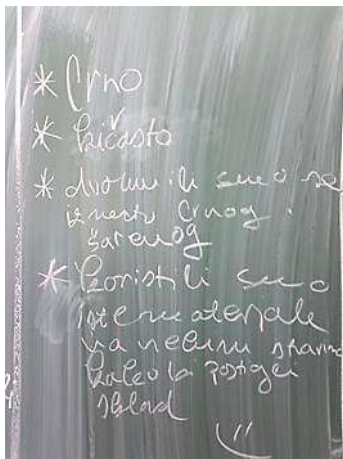 * Crno
* kičasto
* dvoumili smo se
između Crnog i
šarenog
* koristili smo
iste materijale
na nekim stvarima
kako bi postigli
sklad